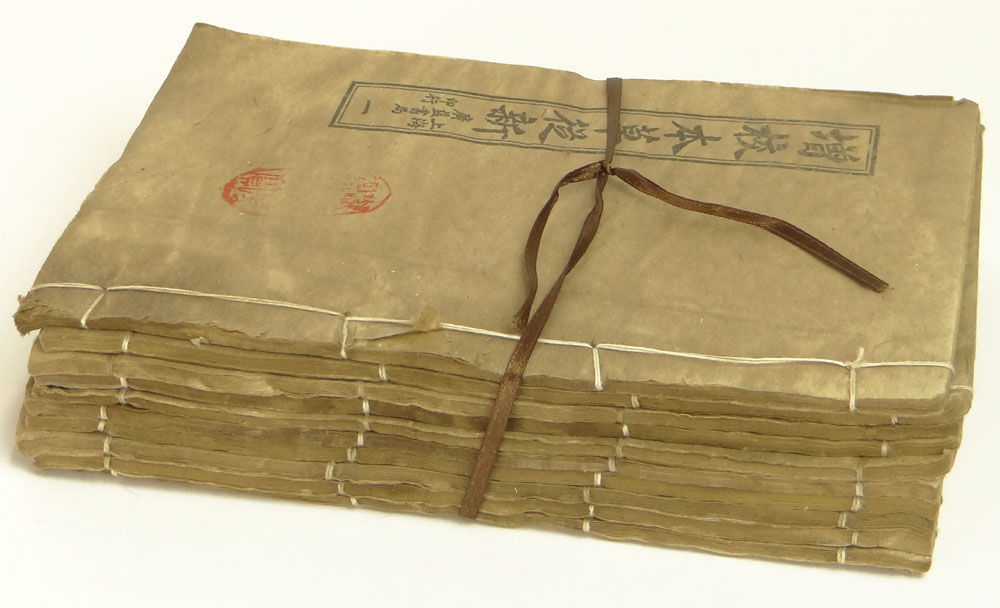 增校本草從新
上海
廣益書局
印行
一